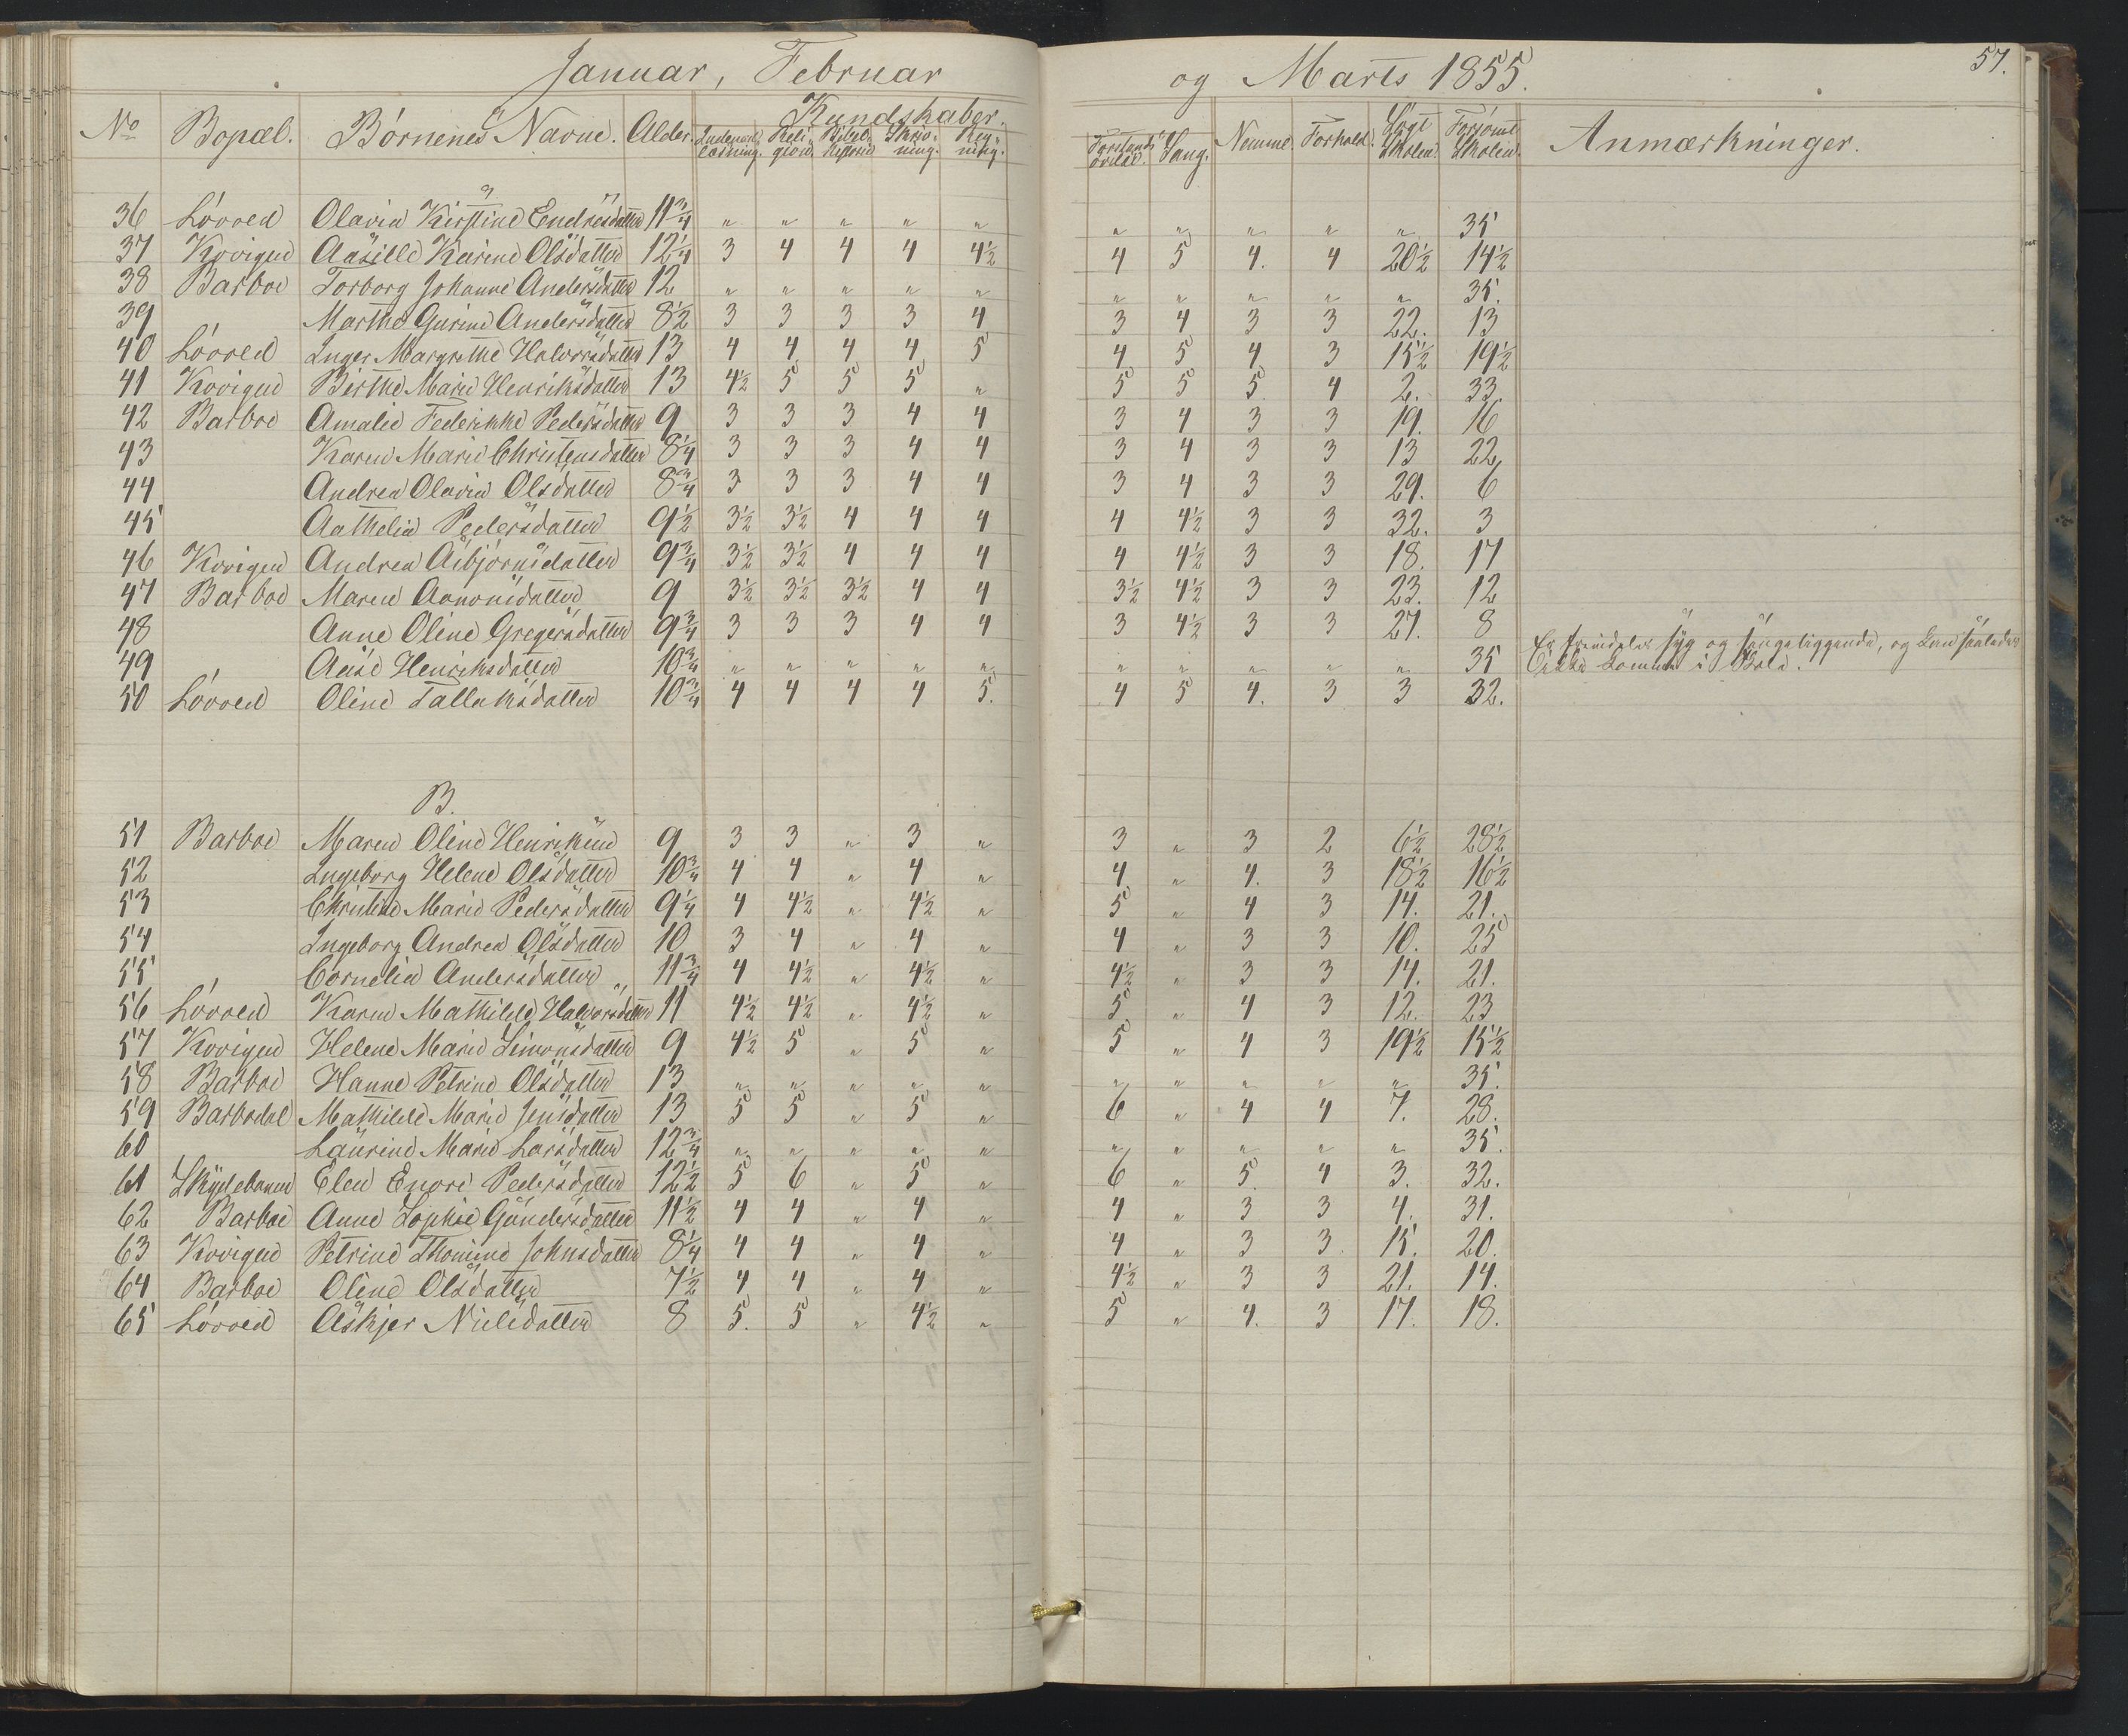 Januar, Februar og Marts 1855. 57.
No Bopæl. Børnenes Navne. Alder. Kundskaber. Nemme. Forhold. Søgt Skolen. Forsømt Skolen. Anmærkninger.
Indenad- læsning. Reli- gion. Bibel- historie Skriv- ning. Reg- ning. Forstands- øvelse. Sang.
36 Løvved Olavia Kirstine Endresdatter 11 3/4 " " " " " " " " " " 35
37 Kovigen Aasille Karine Olsdatter 12 1/4 3 4 4 4 4 1/2 4 5 4. 4 20 1/2 14 1/2
38 Barboe Torborg Johanne Andersdatter 12 " " " " " " " " " " 35.
39 Marthe Gurine Andersdatter 8 1/2 3 3 3 3 4 3 4 3 3 22. 13
40 Løvved Inger Margrethe Halvorsdatter 13 4 4 4 4 5 4 5 4 3 15 1/2 19 1/2
41 Kovigen Birthe Marie Henriksdatter 13 4 1/2 5 5 5 " 5 5 5. 4 2. 33.
42 Barboe Amalie Federikke Pedersdatter 9 3 3 3 4 4 3 4 3 3 19. 16
43 Karen Marie Christensdatter 8 1/4 3 3 3 4 4 3 4 3 3 13 22
44 Andrea Olavia Olsdatter 8 3/4 3 3 3 4 4 3 4 3 3 29. 6
45 Aathelia Pedersdatter 9 1/2 3 1/2 3 1/2 4 4 4 4 4 1/2 3 3 32. 3
46 Kovigen Andrea Asbjørnsdatter 9 3/4 3 1/2 3 1/2 4 4 4 4 4 1/2 3 3 18. 17
47 Barboe Maren Aanonsdatter 9 3 1/2 3 1/2 3 1/2 4 4 3 1/2 4 1/2 3 3 23. 12
48 Anne Oline Gregersdatter 9 3/4 3 3 3 4 4 3 4 1/2 3 3 27. 8
49 Aase Henriksdatter 10 3/4 " " " " " " " " " " 35 Er fremdeles syg og sengeliggende, og kan saaledes
ikke komme i Skole.
50 Løvved Oline Tallaksdatter 10 3/4 4 4 4 4 5. 4 5 4. 3 3 32.
B.
51 Barboe Maren Oline Henriksen 9 3 3 " 3 " 3 " 3 2 6 1/2 28 1/2
52 Ingeborg Helene Olsdatter 10 3/4 4 4 " 4 " 4 " 4. 3 18 1/2 16 1/2
53 Christine Marie Pedersdatter 9 1/4 4 4 1/2 " 4 1/2 " 5 " 4 3 14. 21.
54 Ingeborg Andrea Olsdatter 10 3 4 " 4 " 4 " 3 3 10. 25
55 Cornelia Andersdatter 11 3/4 4 4 1/2 " 4 1/2 " 4 1/2 " 3 3 14. 21.
56 Løvved Karen Mathilde Halvorsdatter 11 4 1/2 4 1/2 " 4 1/2 " 5 " 4 3 12. 23
57 Kovigen Helene Marie Simonsdatter 9 4 1/2 5 " 5 " 5 " 4 3 19 1/2 15 1/2
58 Barboe Hanne Petrine Olsdatter 13 " " " " " " " " " " 35.
59 Barbodal Mathilde Marie Jensdatter 13 5 5 " 5 " 6 " 4 4 7. 28.
60 Laurine Marie Larsdatter 12 3/4 " " " " " " " " " " 35.
61 Skydebanen Elen Enore Pedersdatter 12 1/2 5 6 " 5 " 6 " 5. 4 3. 32.
62 Barboe Anne Sophie Gundersdatter 11 1/2 4 4 " 4 " 4 " 3 3 4. 31.
63 Kovigen Petrine Thomine Johnsdatter 8 1/4 4 4 " 4 " 4 " 3 3 15. 20.
64 Barboe Oline Olsdatter 7 1/2 4 4 " 4 " 4 1/2 " 3 3 21. 14.
65 Løvved Askjer Nielsdatter 8 5. 5 " 4 1/2 " 5 " 4. 3 17. 18.